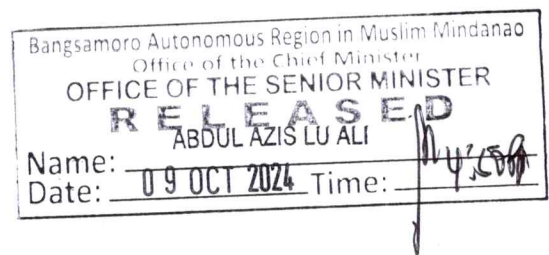 Bangsamoro Autonomous Region in Muslim Mindanao
Office of the Chief Minister
OFFICE OF THE SENIOR MINISTER
RELEASED
ABDUL AZIS LU ALI
Name:
Date: 09 OCT 2024 Time: